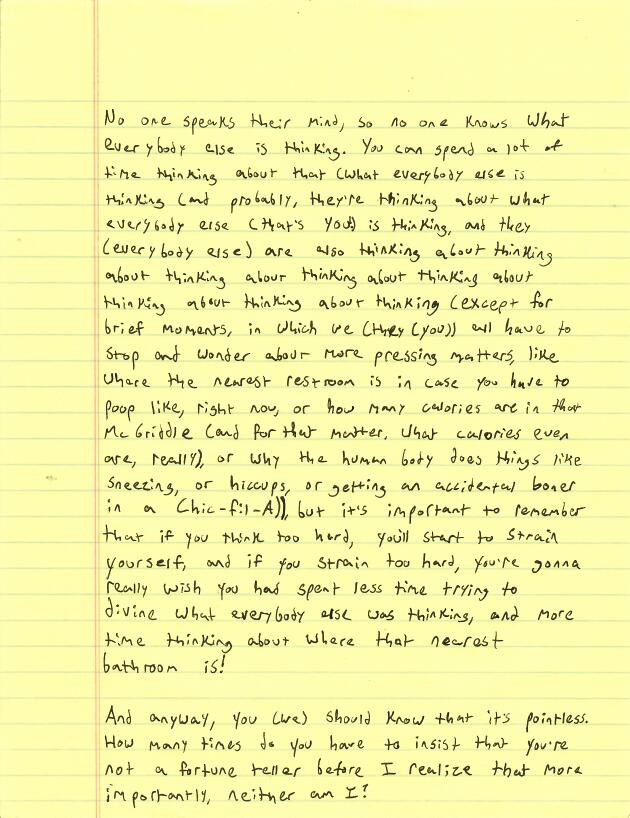 No one speaks their mind, so no one knows what
everybody else is thinking. You can spend a lot of
time thinking about that (what everybody else is
thinking (and probably, they're thinking about what
everybody else (that's you) is thinking, and they
(everybody else) are also thinking about thinking
about thinking about thinking about thinking about
thinking about thinking about thinking (except for
brief moments, in which we (they (you)) all have to
stop and wonder about more pressing matters, like
where the nearest restroom is in case you have to
poop like, right now, or how many calories are in that
McGriddle (and for that matter, what calories even
are, really), or why the human body does things like
sneezing, or hiccups, or getting an accidental boner
in a Chic-fil-A)), but it's important to remember
that if you think too hard, you'll start to strain
yourself, and if you strain too hard, you're gonna
really wish you had spent less time trying to
divine what everybody else was thinking, and more
time thinking about where that nearest
bathroom is!
And anyway, you (we) should know that it's pointless.
How many times do you have to insist that you're
not a fortune teller before I realize that more
importantly, neither am I?